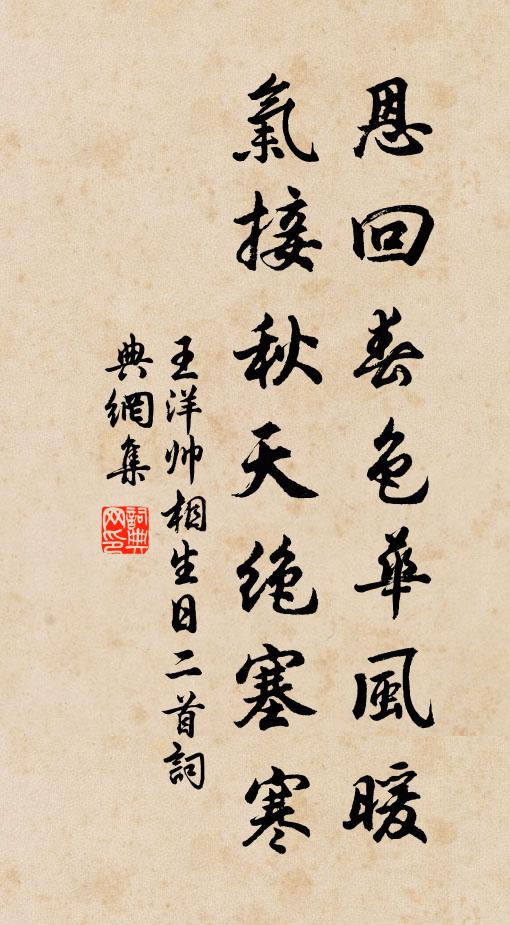 恩回春色華風暖
氣接秋天绝塞寒
王洋帅相生日二首詞
典網集
詞典
网印